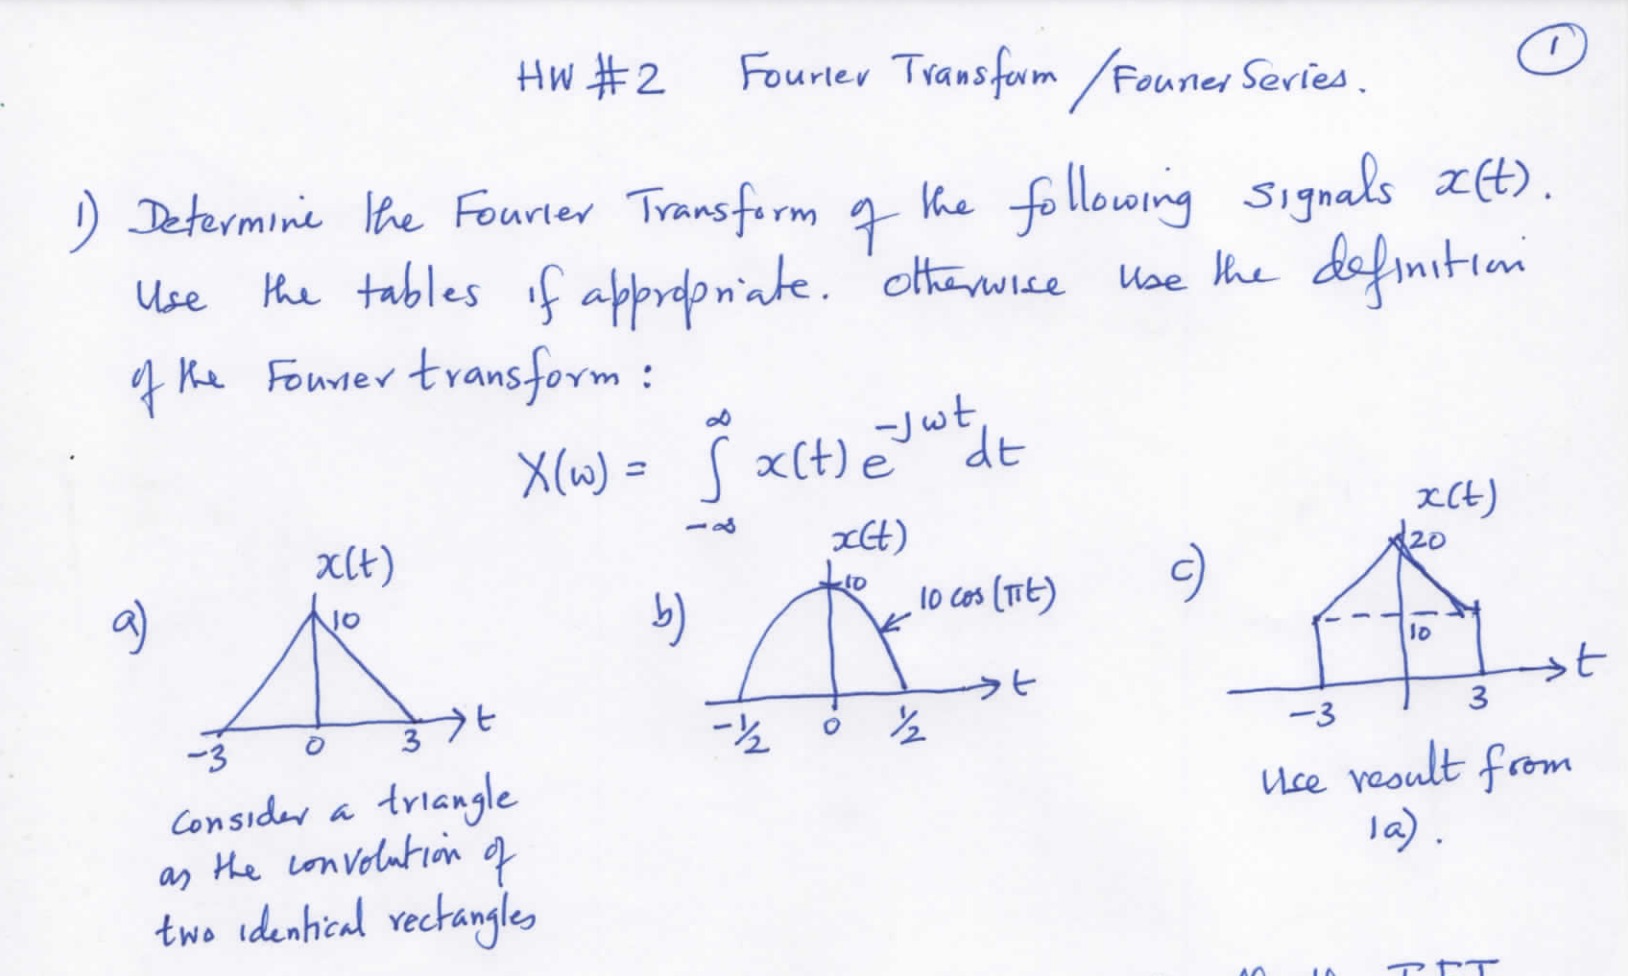 ①
HW #2 Fourier Transform / Fourier Series.
1) Determine the Fourier Transform of the following signals x(t).
Use the tables if appropriate. Otherwise use the definition
of the Fourier transform:
X(ω) = ∫_{-∞}^{∞} x(t) e^{-jωt} dt
a)
x(t)
10
-3 0 3 t
Consider a triangle
as the convolution of
two identical rectangles
b)
x(t)
10
10 cos (πt)
-1/2 0 1/2 t
c)
x(t)
20
10
-3 3 t
Use result from
1a).